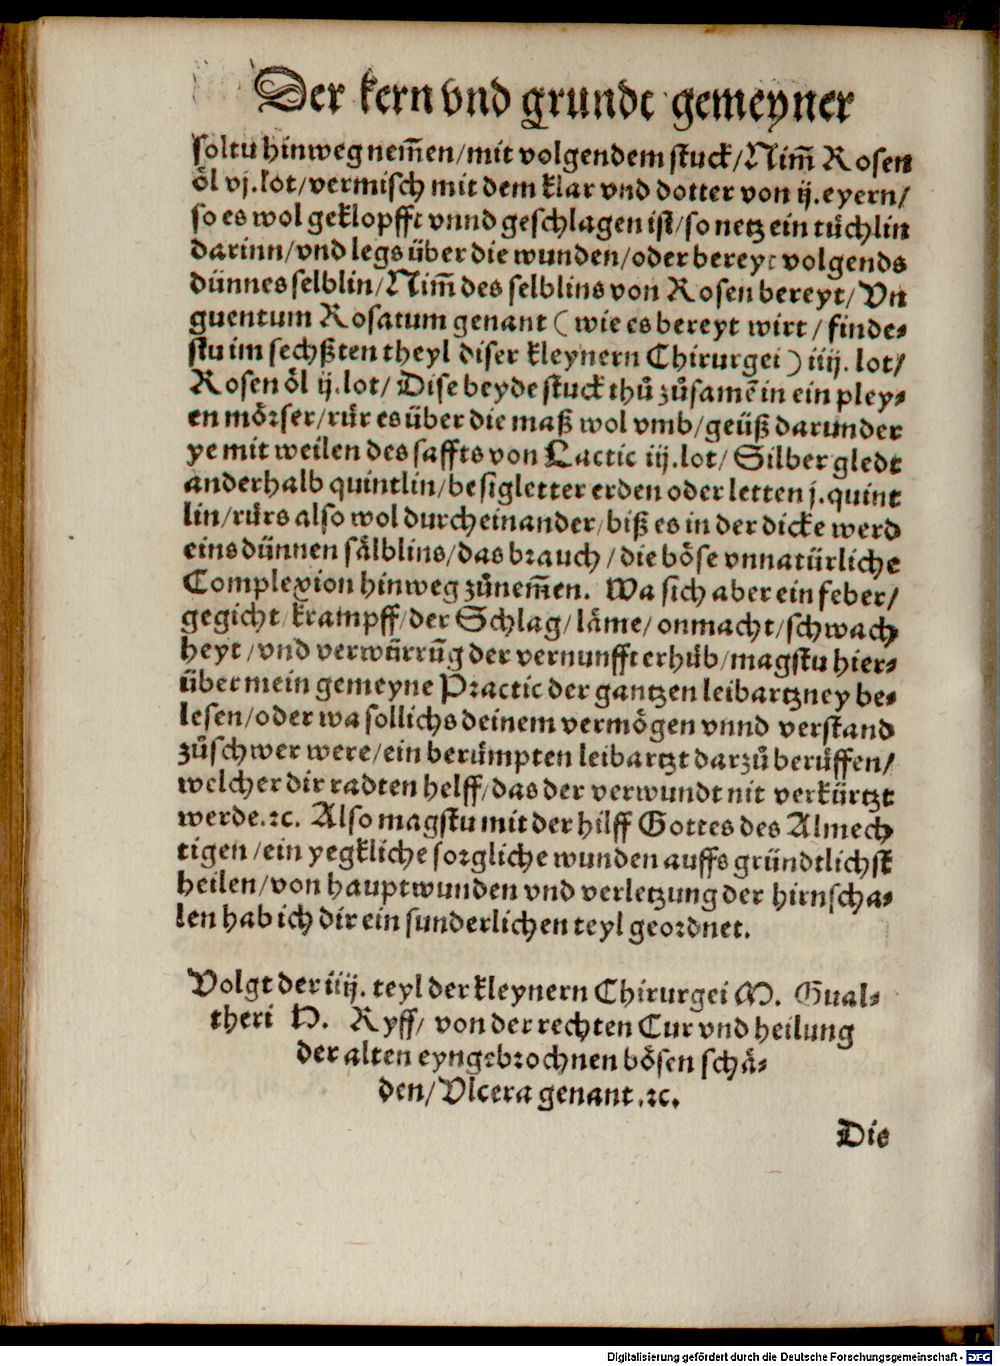 Der kern vnd grundt gemeyner
soltu hinweg nem̃en/mit volgendem stuck/Nim̃ Rosen
öl vj.lot/vermisch mit dem klar vnd dotter von ij.eyern/
so es wol geklopfft vnnd geschlagen ist/so netz ein tüchlin
darinn/vnd legs über die wunden/oder bereyt volgends
dünnes selblin/Nim̃ des selblins von Rosen bereyt/Vn
guentum Rosatum genant (wie es bereyt wirt/finde⸗
stu im sechßten theyl diser kleynern Chirurgei) iiij. lot/
Rosen öl ij.lot/Dise beyde stuck thů zůsamẽ in ein pley⸗
en mörser/rür es über die maß wol vmb/geüß darunder
ye mit weilen des saffts von Lactic iij.lot/Silber gledt
anderhalb quintlin/besigletter erden oder letten j.quint
lin/rürs also wol durcheinander/biß es in der dicke werd
eins dünnen sälblins/das brauch/die böse vnnatürliche
Complexion hinweg zůnem̃en. Wa sich aber ein feber/
gegicht/krampff/der Schlag/läme/onmacht/schwach
heyt/vnd verwürrũg der vernunfft erhüb/magstu hier⸗
über mein gemeyne Practic der gantzen leibartzney be⸗
lesen/oder wa sollichs deinem vermögen vnnd verstand
zůschwer were/ein berümpten leibartzt darzů berüffen/
welcher dir radten helff/das der verwundt nit verkürtzt
werde.ꝛc. Also magstu mit der hilff Gottes des Almech
tigen/ein yegkliche sorgliche wunden auffs gründtlichst
heilen/von hauptwunden vnd verletzung der hirnscha⸗
len hab ich dir ein sunderlichen teyl geordnet.
Volgt der iiij. teyl der kleynern Chirurgei M. Gual⸗
theri H. Ryff/ von der rechten Cur vnd heilung
der alten eyngebrochnen bösen schä⸗
den/Vlcera genant.ꝛc.
Die
Digitalisierung gefördert durch die Deutsche Forschungsgemeinschaft - DFG